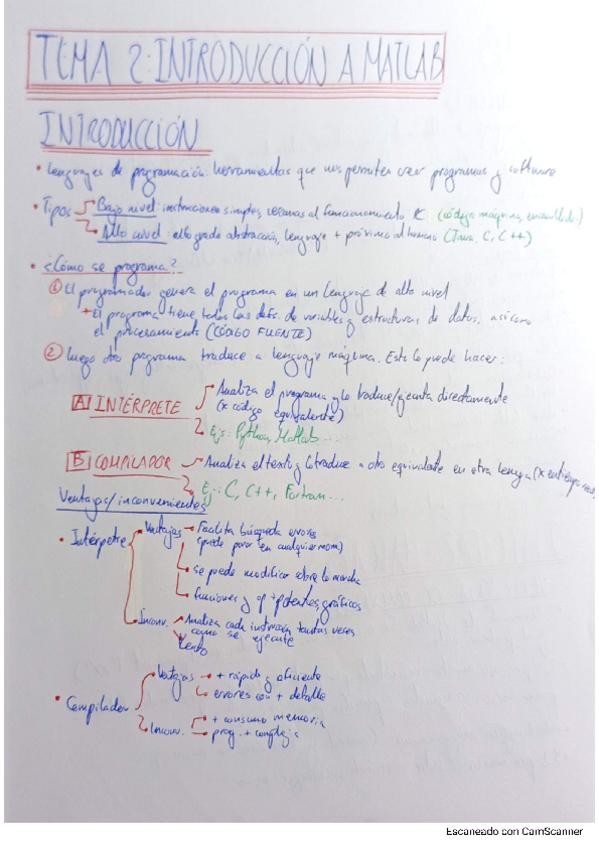 TEMA 2: INTRODUCCIÓN A MATLAB
INTRODUCCIÓN
• Lenguajes de programación: herramientas que nos permiten crear programas y software
• Tipos → Bajo nivel: instrucciones simples, cercanas al funcionamiento (código máquina, ensamblador)
→ Alto nivel: alto grado abstracción, lenguaje + próximo al humano (Java, C, C++)
• ¿Cómo se programa?
① El programador genera el programa en un lenguaje de alto nivel
→ El programa tiene todas las defs. de variables y estructuras de datos, así como
el procesamiento (CÓDIGO FUENTE)
② Luego otro programa traduce a lenguaje máquina. Esto lo puede hacer:
A INTÉRPRETE → Analiza el programa y lo traduce/ejecuta directamente
(x código equivalente)
→ Ejs: Python, Matlab...
B COMPILADOR → Analiza el text y lo traduce a otro equivalente en otra lengua (x
→ Ej: C, C++, Fortran...
Ventajas/inconvenientes
• Intérprete
Ventajas → Facilita búsqueda errores
(puede parar en cualquier mom)
→ se puede modificar sobre la marcha
→ funciones y op + potentes, gráficos
Inconv. → Analiza cada instrucción tantas veces
como se ejecute
Lento
• Compilador
Ventajas → + rápido y eficiente
→ errores con + detalle
Inconv. → + consumo memoria
→ prog. + compleja
Escaneado con CamScanner